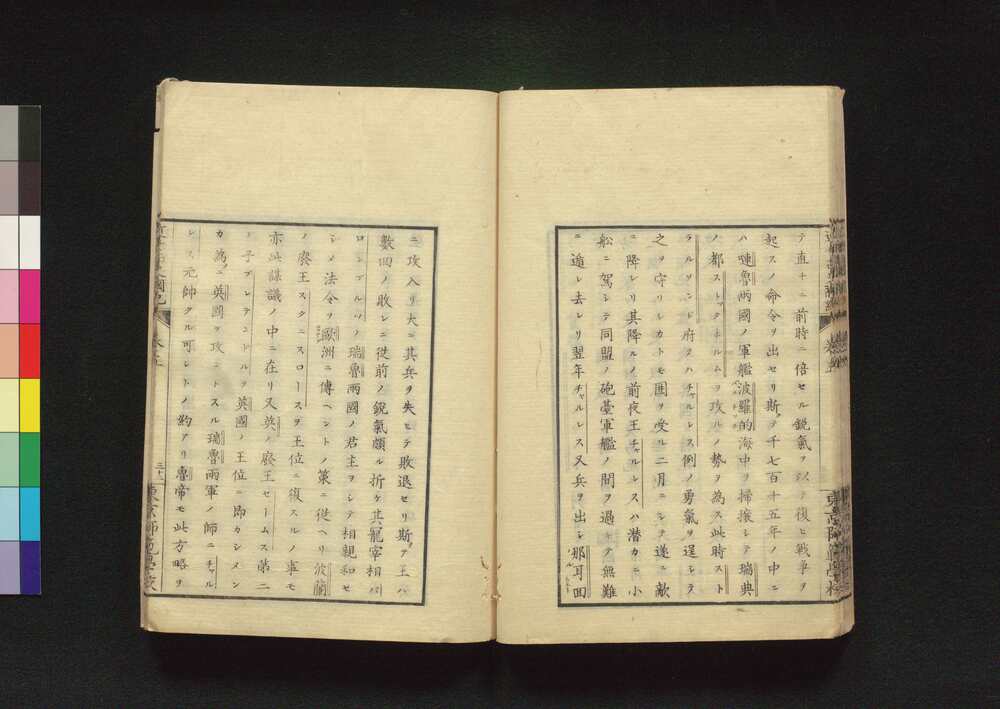 テ直チニ前時ニ倍セル鋭氣ヲ以テ復ヒ戰爭ヲ
起スノ命令ヲ出セリ斯テ千七百十五年ノ中ニ
ハ嗹魯兩國ノ軍艦波羅的海中ヲ掃攘シテ瑞典
ノ都ストックホルムヲ攻ルノ勢ヲ為ス此時スト
ラルソンド府ヲハチャルレス例ノ勇氣ヲ逞シラ
之ヲ守リシカトモ囲ヲ受ル二月ニシテ遂ニ敵
ニ降レリ其降ルノ前夜王チャルレスハ潜カニ小
舩ニ駕シテ同盟ノ砲臺軍艦ノ間ヲ過ケテ無難
ニ遁レ去レリ翌年チャルレス又兵ヲ出シ那耳回
ニ攻入リ大ニ其兵ヲ失ヒテ敗退セリ斯テ王ハ
數回ノ敗レニ從前ノ鋭氣頗ル折ケ其寵宰相バ
ロンゴルツノ瑞魯兩國ノ君主ヲシテ相親和セ
シメ法令ヲ歐洲ニ傳ヘントノ策ニ從ヘリ波蘭
ノ廢王スタニスロースヲ王位ニ復スルノ事モ
亦此謀議ノ中ニ在リ又英ノ廢王セームス第二
ノ子プレテンレルヲ英國ノ王位ニ即カシメン
カ為ニ英國ヲ攻ントスル瑞魯兩軍ノ師ニチャル
レス元帥タル可シトノ約アリ魯帝モ此方略ヲ
三十